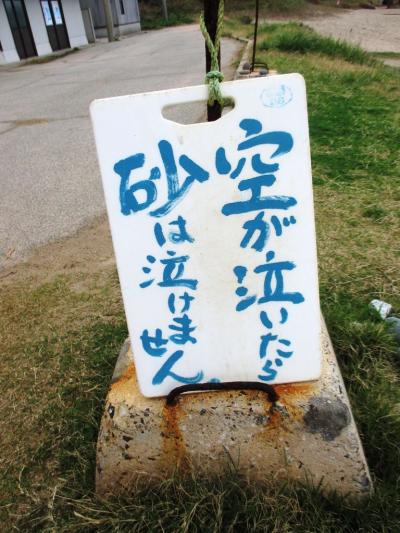 空が泣いたら
砂は泣けません。